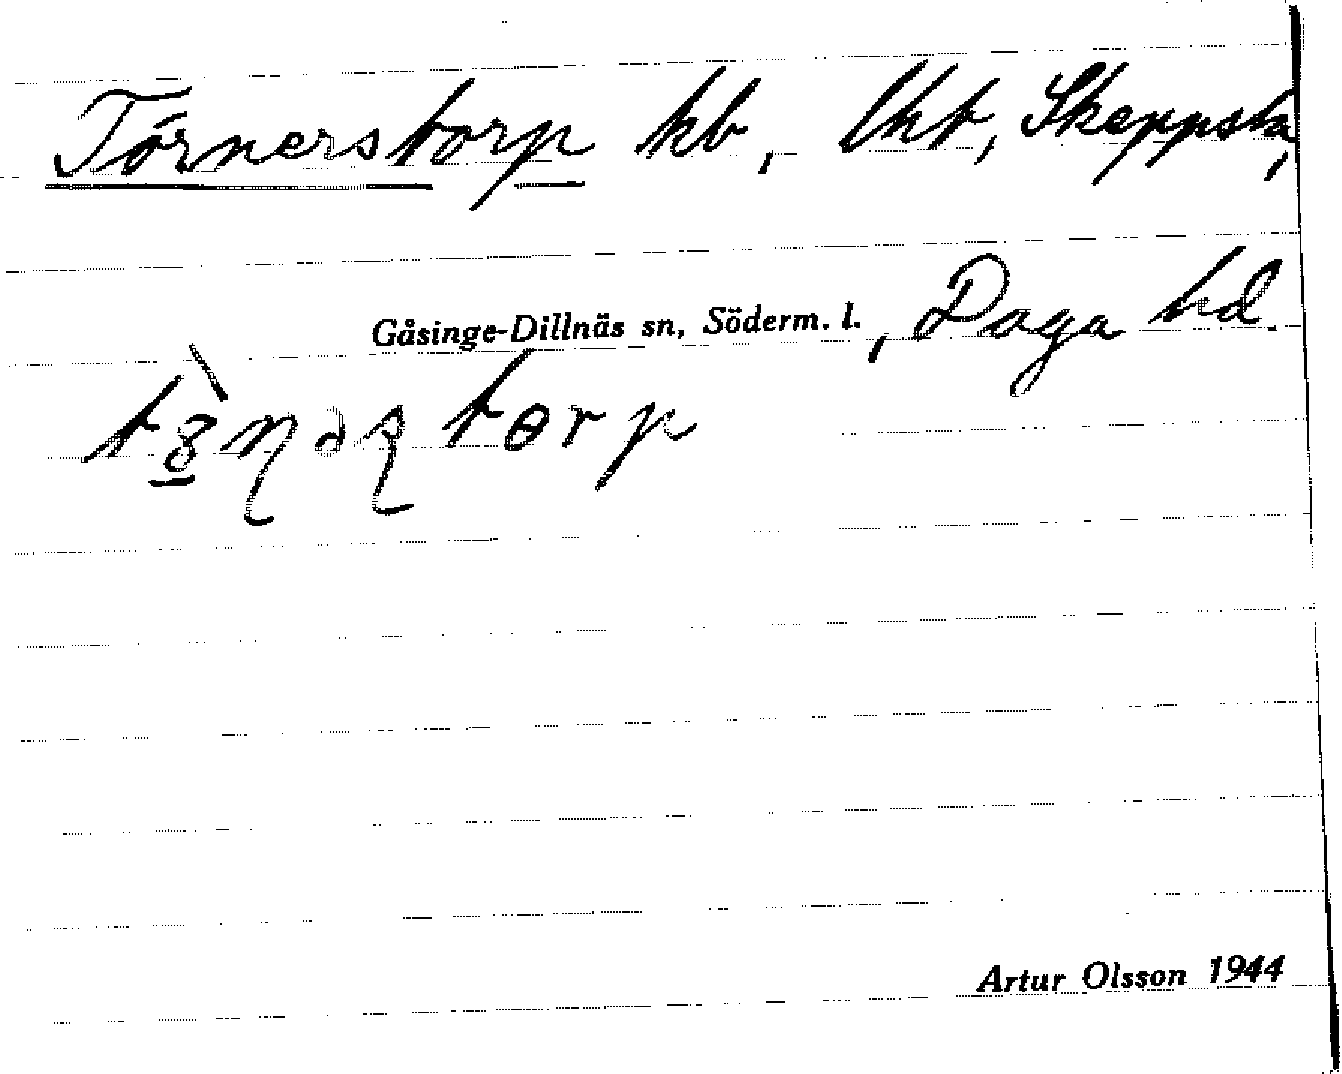 Törnerstorp hb, lht, Skeppsta,
Gåsinge-Dillnäs sn, Söderm. l., Daga hd.
Artur Olsson 1944